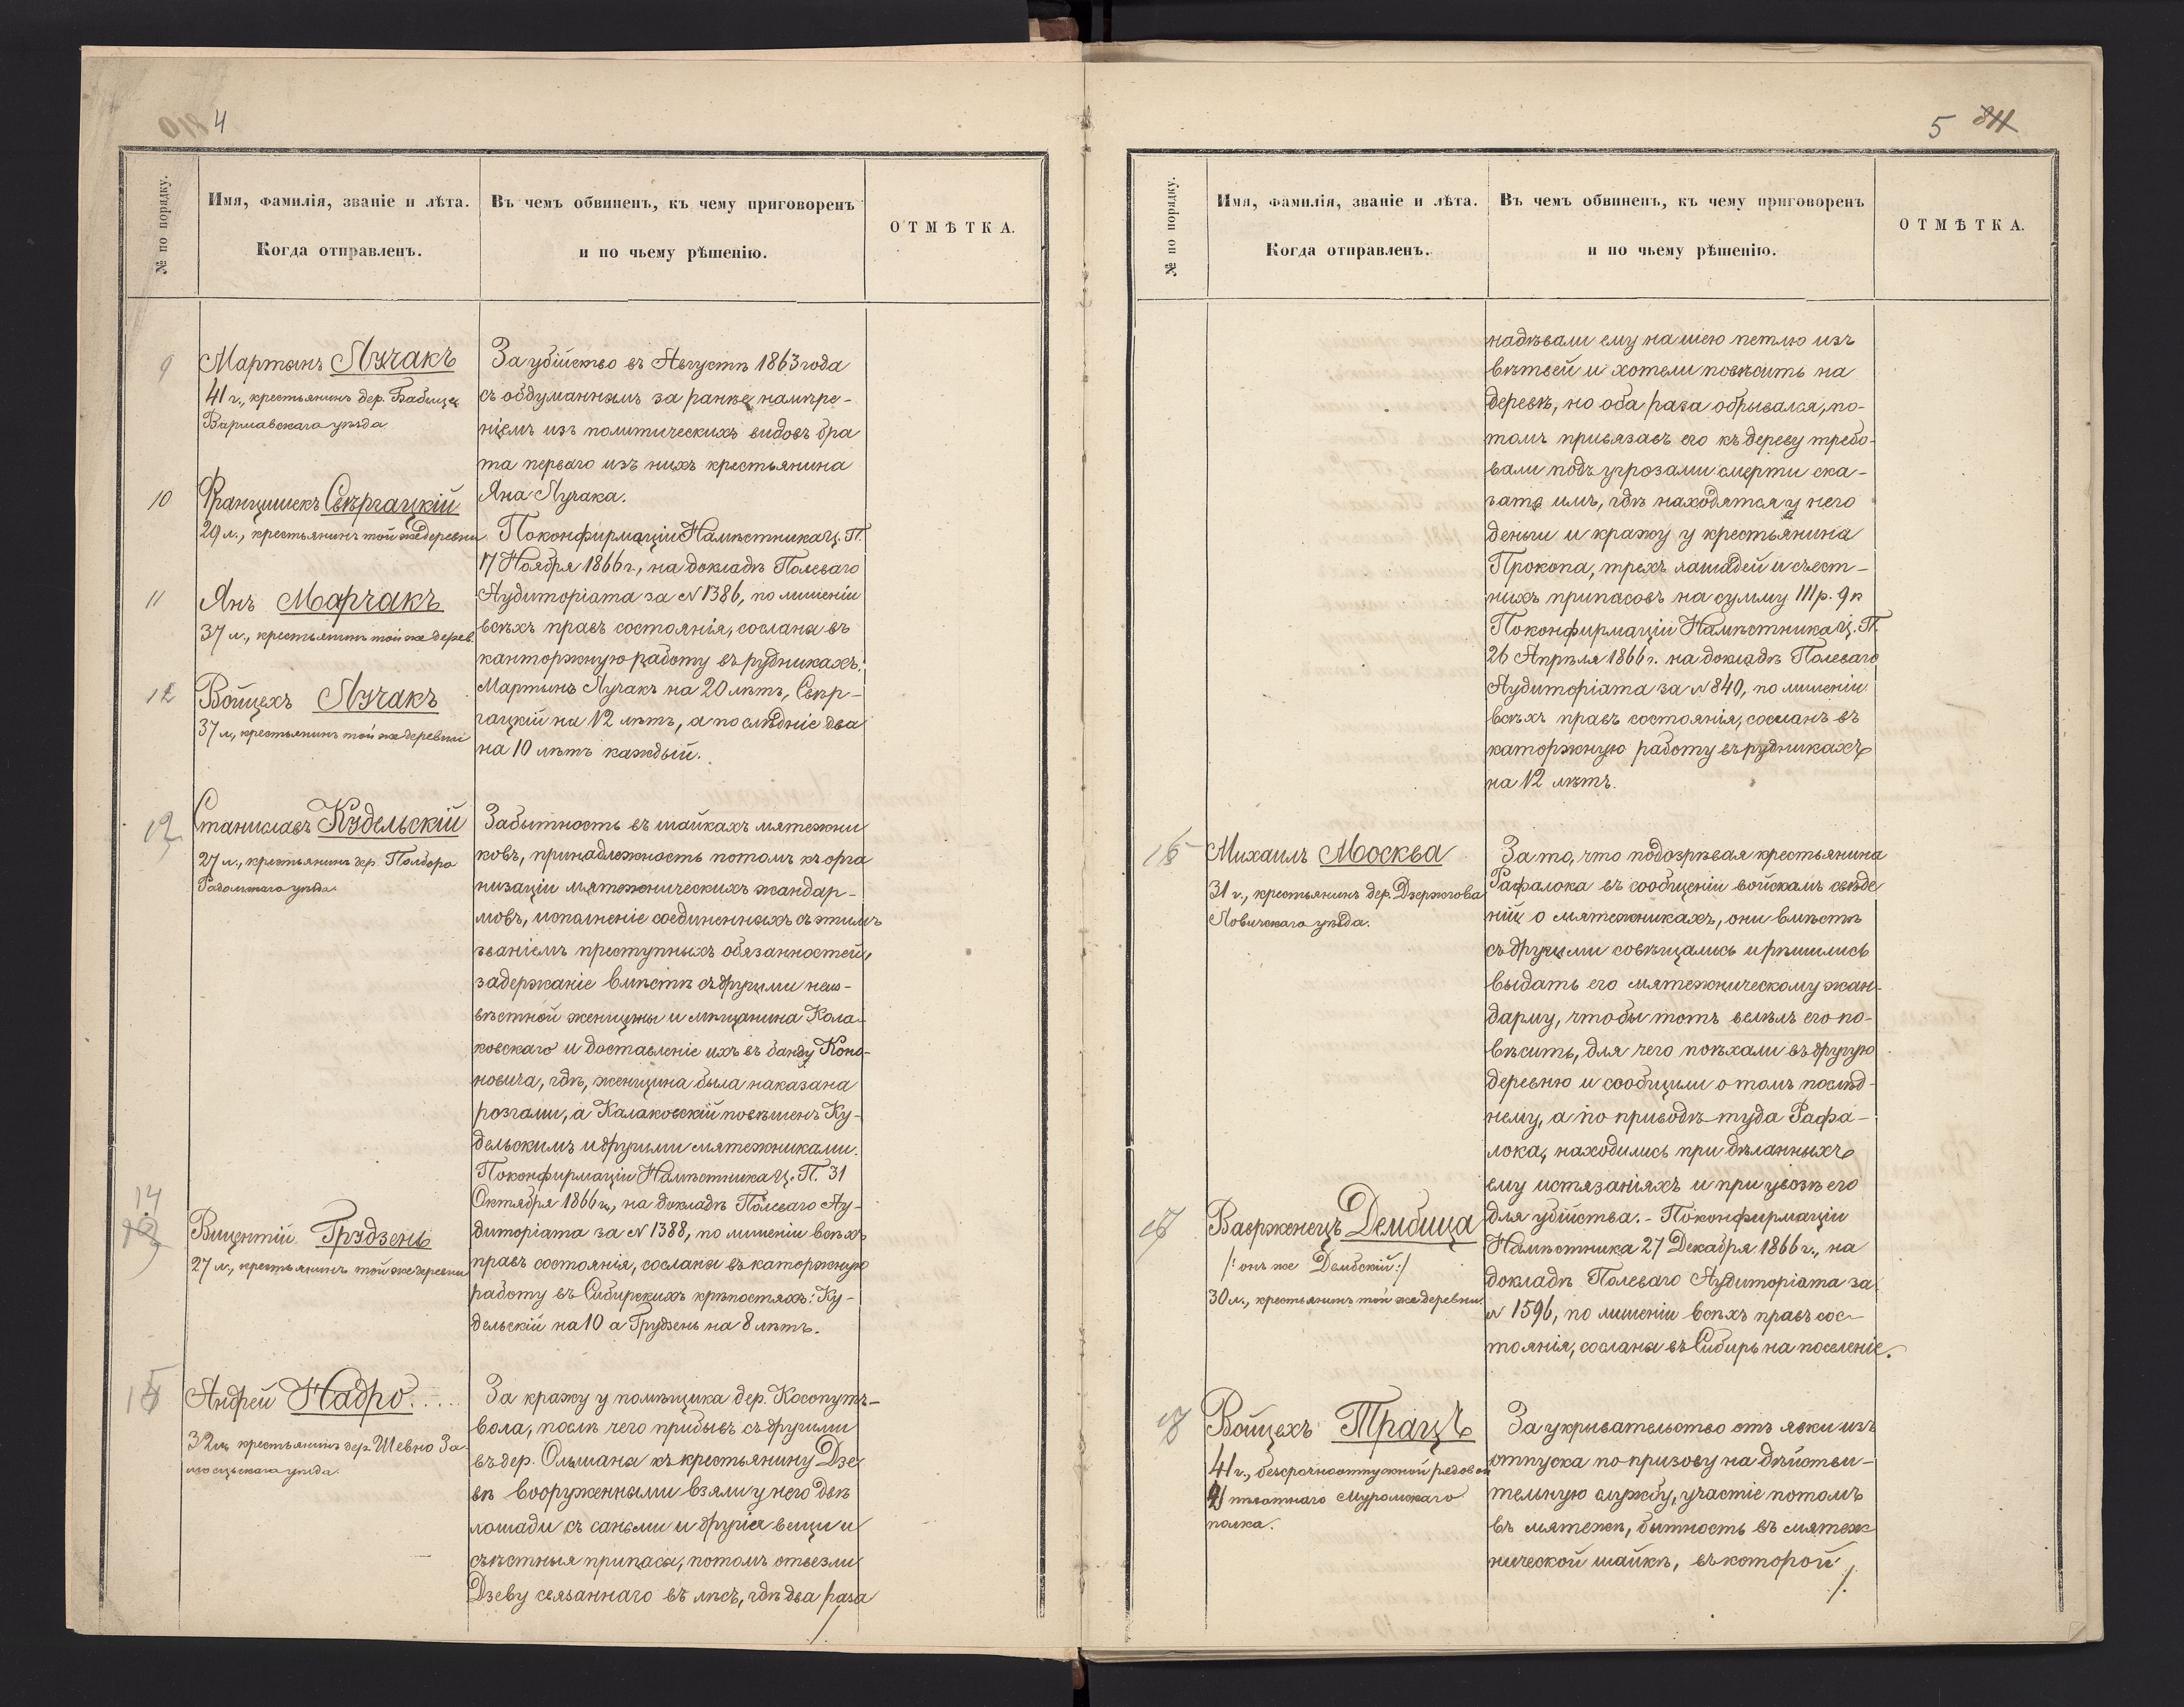 4
№ по порядку.
Имя, фамилія, званіе и лѣта.
Когда отправленъ.
Въ чемъ обвиненъ, къ чему приговоренъ
и по чьему рѣшенію.
ОТМѢТКА.
9
Мартынъ Лучакъ
41 г., крестьянинъ дер. Бабицы
Варшавскаго уѣзда
10
Францишекъ Свѣргацкій
29 л., крестьянинъ той же деревни
11
Янъ Марчакъ
37 л., крестьянинъ той же дерев.
12
Войцехъ Лучакъ
37 л., крестьянинъ той же деревни
За убійство въ Августѣ 1863 года
съ обдуманнымъ за ранѣе намѣре-
ніемъ изъ политическихъ видовъ бра
та перваго изъ нихъ крестьянина
Яна Лучака.
По конфирмаціи Намѣстника Ц. П.
17 Ноября 1866 г., на докладѣ Полеваго
Аудиторіата за № 1386, по лишеніи
всѣхъ правъ состоянія, сосланы въ
канторжную работу въ рудникахъ:
Мартынъ Лучакъ на 20 лѣтъ, Свѣр-
гацкій на 12 лѣтъ, а послѣдніе два
на 10 лѣтъ каждый.
Станиславъ Кудельскій
27 л., крестьянинъ дер. Полбора
Радомскаго уѣзда.
14
Вицентій Грудзень
27 л., крестьянинъ той же деревни
За бытность въ шайкахъ мятежни
ковъ, принадлежность потомъ къ орга
низаціи мятежническихъ жандар-
мовъ, исполненіе соединенныхъ съ этимъ
званіемъ преступныхъ обязанностей,
задержаніе вмѣстѣ съ другими неиз-
вѣстной женщины и мѣщанина Кола-
ковскаго и доставленіе ихъ въ банду Коно-
новича, гдѣ, женщина была наказана
розгами, а Калаковскій повѣшенъ Ку-
дельскимъ и другими мятежниками.
По конфирмаціи Намѣстника Ц. П. 31
Октября 1866 г., на докладѣ Полеваго Ау-
диторіата за № 1388, по лишеніи всѣхъ
правъ состоянія, сосланы въ каторжную
работу въ Сибирскихъ крѣпостяхъ: Ку-
дельскій на 10 а Грудзень на 8 лѣтъ.
15
Андрей Надро
32 л., крестьянинъ дер. Шевно За-
мосцьскаго уѣзда.
За кражу у помѣщика дер. Косопуть-
вола, послѣ чего прибывъ съ другими
въ дер. Ольшана къ крестьянину Дзе
вѣ вооруженными взяли у него двѣ
лошади съ саньми и другія вещи и
съѣстныя припасы, потомъ отвезли
Дзеву связаннаго въ лѣсъ, гдѣ два раза
/
5
№ по порядку.
Имя, фамилія, званіе и лѣта.
Когда отправленъ.
Въ чемъ обвиненъ, къ чему приговоренъ
и по чьему рѣшенію.
ОТМѢТКА.
надѣвали ему на шею петлю изъ
вѣтвей и хотели повѣсить на
деревѣ, но оба раза обрывался, по-
томъ привязавъ его къ дереву требо-
вали подъ угрозами смерти ска-
зать имъ, гдѣ находятся у него
деньги и кражу у крестьянина
Прокопа, трехъ лошадей и съест-
ныхъ припасовъ на сумму 111 р. 9 к
По конфирмаціи Намѣстника Ц. П.
26 Апрѣля 1866 г. на докладѣ Полеваго
Аудиторіата за № 840, по лишеніи
всѣхъ правъ состоянія, сосланъ въ
каторжную работу въ рудникахъ
на 12 лѣтъ.
16
Михаилъ Москва
31 г., крестьянинъ дер. Дзержгова
Ловичскаго уѣзда.
17
Вавржонецъ Дембица
/: онъ же Дембскій :/
30 л., крестьянинъ той же деревни.
За то, что подозрѣвая крестьянина
Рафалока въ сообщеніи войскамъ свѣде
ній о мятежникахъ, они вмѣстѣ
съ другими совѣщались и рѣшились
выдать его мятежническому жан-
дарму, чтобы тотъ велѣлъ его по-
вѣсить, для чего поѣхали въ другую
деревню и сообщили о томъ послѣд-
нему, а по приводѣ туда Рафа-
лока, находились при дѣланныхъ
ему истязаніяхъ и при увозѣ его
для убійства. - По конфирмаціи
Намѣстника 27 Декабря 1866 г., на
докладѣ Полеваго Аудиторіата за
№ 1596, по лишеніи всѣхъ правъ сос-
тоянія, сосланы въ Сибирь на поселеніе.
18
Войцехъ Трацъ
41 г., безсрочноотпускной рядовой
пѣхотнаго Муромскаго
полка.
За укривательство отъ явки изъ
отпуска по призову на дѣйстви-
тельную службу, участіе потомъ
въ мятежѣ, бытность въ мятеж
нической шайкѣ, въ которой
/.